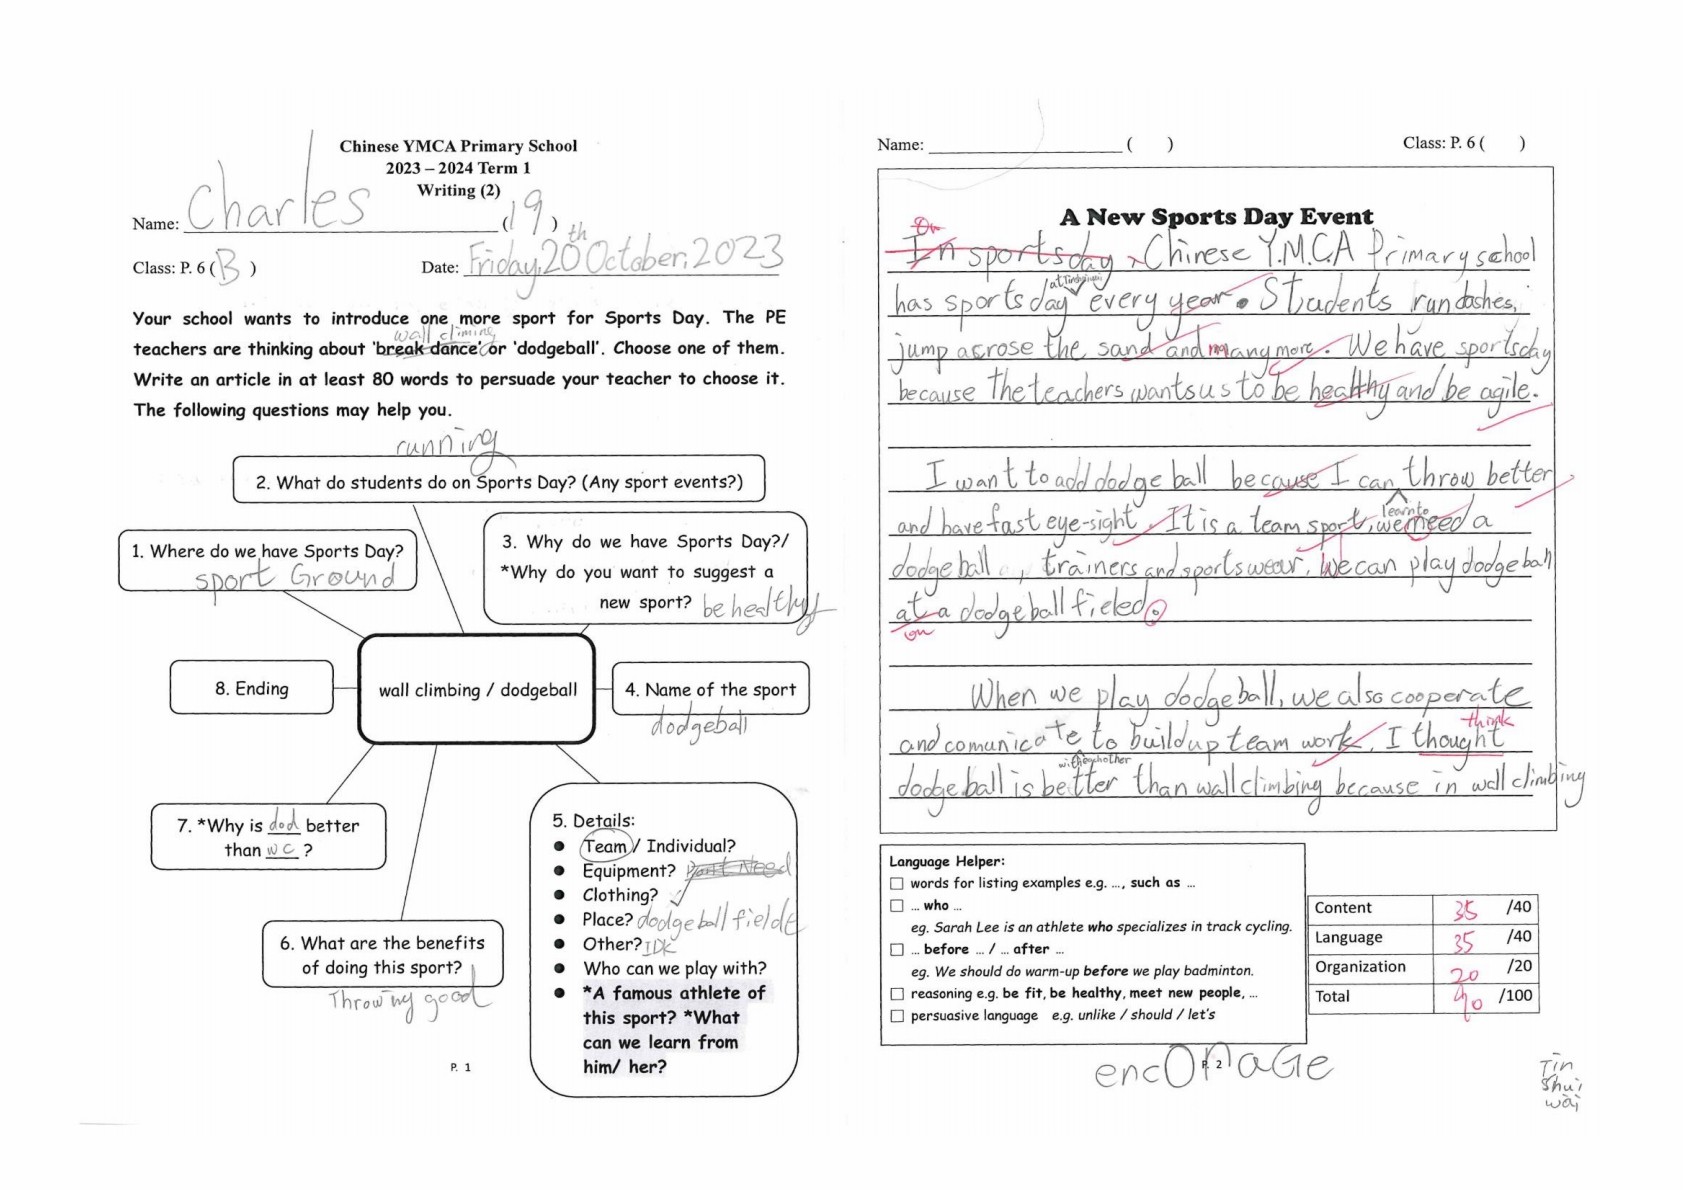 Chinese YMCA Primary School
2023 – 2024 Term 1
Writing (2)
Name: Charles (19)
Class: P. 6 (B) Date: Friday, 20th October, 2023
Your school wants to introduce one more sport for Sports Day. The PE
wall climing
teachers are thinking about 'break dance' or 'dodgeball'. Choose one of them.
Write an article in at least 80 words to persuade your teacher to choose it.
The following questions may help you.
running
2. What do students do on Sports Day? (Any sport events?)
1. Where do we have Sports Day?
sport Ground
3. Why do we have Sports Day?/
*Why do you want to suggest a
new sport? be healthy
8. Ending
wall climbing / dodgeball
4. Name of the sport
dodgeball
7. *Why is dod better
than wc ?
6. What are the benefits
of doing this sport?
Throwing good
5. Details:
● Team / Individual?
● Equipment?
● Clothing? ✓
● Place? dodgeball fielde
● Other? IDK
● Who can we play with?
● *A famous athlete of
this sport? *What
can we learn from
him/ her?
P. 1
Name: ( ) Class: P. 6 ( )
A New Sports Day Event
On
In sportsday, Chinese Y.M.C.A Primary school
at Tinshuiwai
has sportsday every year. Students run dashes,
jump acrose the sand and many more. We have sportsday
because the teachers wants us to be healthy and be agile.
I want to add dodgeball because I can throw better
learn to
and have fast eye-sight. It is a team sport, we need a
dodgeball , trainers and sports wear. We can play dodgeball
at a dodgeball fieled.
on
When we play dodgeball, we also cooperate
think
and comunicate to buildup team work. I thought
with eachother
dodgeball is better than wall climbing because in wall climbing
Language Helper:
☐ words for listing examples e.g. ..., such as ...
☐ ... who ...
eg. Sarah Lee is an athlete who specializes in track cycling.
☐ ... before ... / ... after ...
eg. We should do warm-up before we play badminton.
☐ reasoning e.g. be fit, be healthy, meet new people, ...
☐ persuasive language e.g. unlike / should / let's
Content 35 /40
Language 35 /40
Organization 20 /20
Total 90 /100
P. 2
Tin
Shui
wai